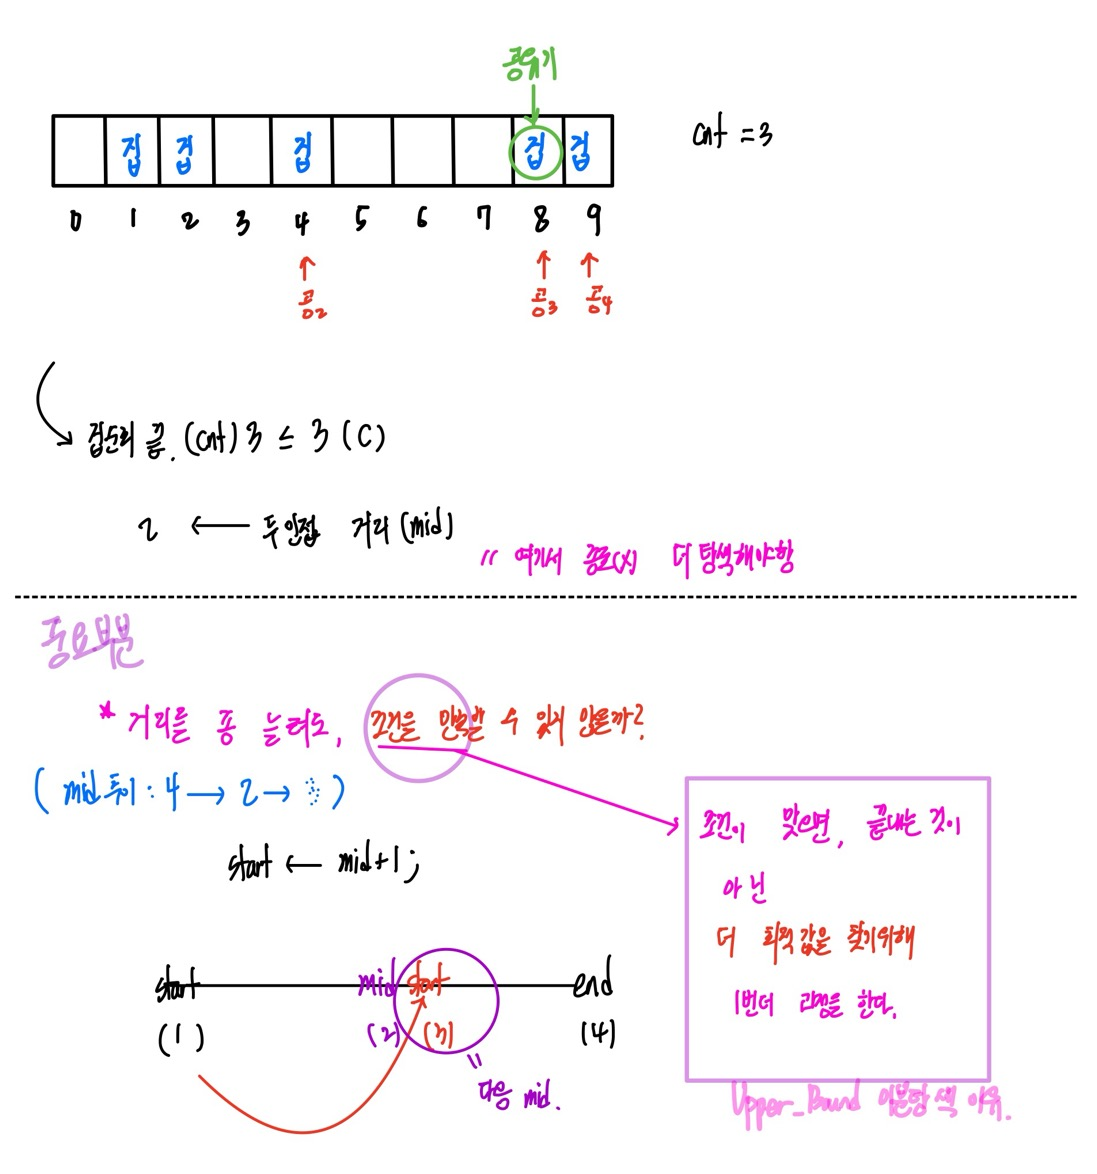 공유기
집 집 집 집 집
cnt = 3
0 1 2 3 4 5 6 7 8 9
공2 공3 공4
집순회 끝. (cnt) 3 ≤ 3 (C)
2 ← 두 인접 거리 (mid)
// 여기서 종료(x) 더 탐색해야함
중요부분
* 거리를 좀 늘려도, 조건을 만족할 수 있지 않을까?
( mid 추이 : 4 → 2 → 3 )
start ← mid+1;
조건이 맞으면, 끝내는 것이
아닌
더 최적 값을 찾기위해
1번더 과정을 한다.
start mid start end
(1) (2) (3) (4)
다음 mid.
Upper_Bound 이분탐색 이유.